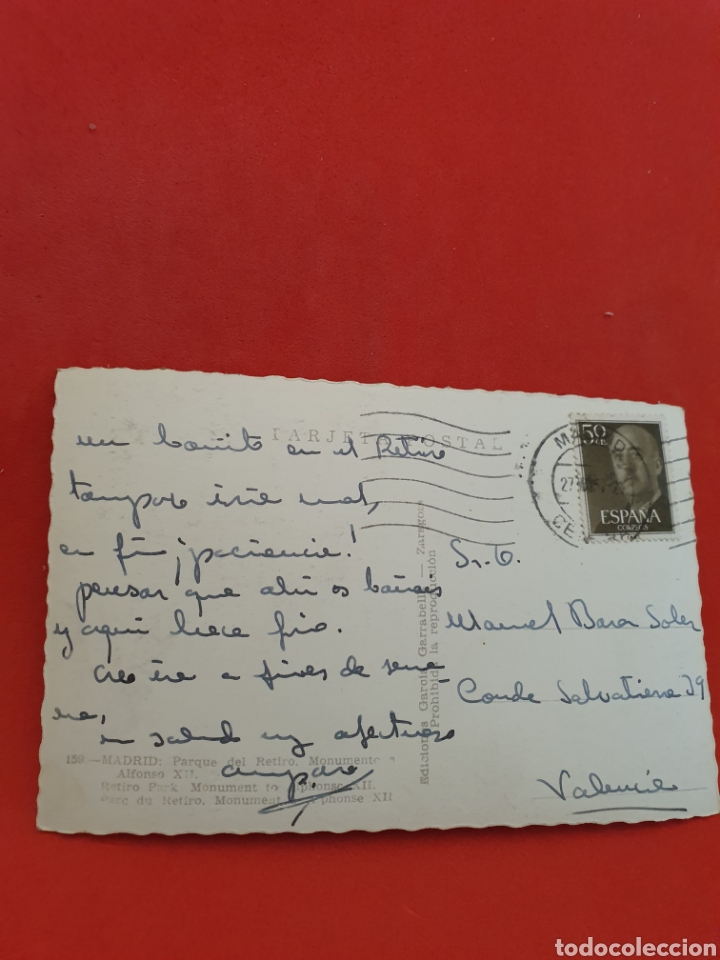 TARJETA POSTAL
un bañito en el Retiro
tampoco iría mal,
en fin ¡paciencia!
pensar que ahí os bañais
y aquí hace frío.
Creo iré a fines de sema
na,
un saludo muy afectuoso
Amparo
159.—MADRID: Parque del Retiro. Monumento a
Alfonso XII.
Retiro Park Monument to Alphonse XII.
Parc du Retiro. Monument Alphonse XII
Ediciones García Garrabella — Zaragoza
Prohibida la reproducción
50
ESPAÑA
CORREOS
Sr. D.
Manuel Soler
Conde Salvatierra 39
Valencia
todocoleccion